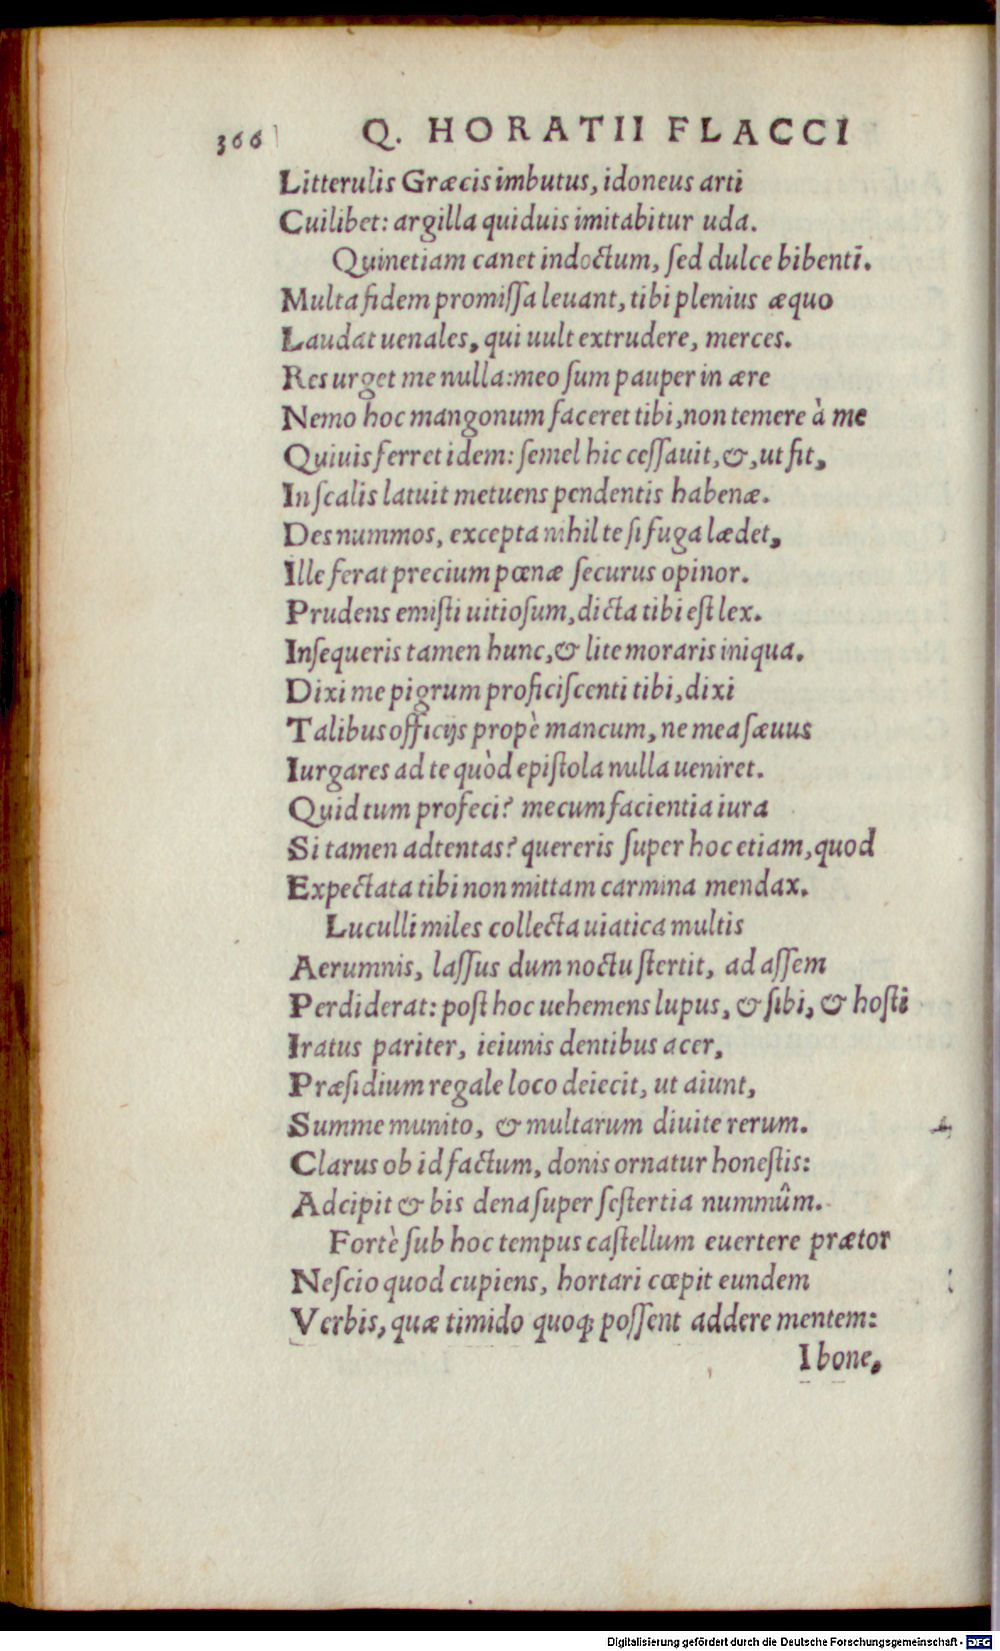 366 Q. HORATII FLACCI
Litterulis Græcis imbutus, idoneus arti
Cuilibet: argilla quiduis imitabitur uda.
Quinetiam canet indoctum, ſed dulce bibenti.
Multa fidem promiſſa leuant, tibi plenius æquo
Laudat uenales, qui uult extrudere, merces.
Res urget me nulla: meo ſum pauper in ære
Nemo hoc mangonum faceret tibi, non temere à me
Quiuis ferret idem: ſemel hic ceſſauit, &, ut fit,
In ſcalis latuit metuens pendentis habenæ.
Des nummos, excepta nihil te ſi fuga lædet,
Ille ferat precium pœnæ ſecurus opinor.
Prudens emiſti uitioſum, dicta tibi eſt lex.
Inſequeris tamen hunc, & lite moraris iniqua.
Dixi me pigrum proficiſcenti tibi, dixi
Talibus officijs propè mancum, ne mea ſæuus
Iurgares ad te quòd epiſtola nulla ueniret.
Quid tum profeci? mecum facientia iura
Si tamen adtentas? quereris ſuper hoc etiam, quod
Expectata tibi non mittam carmina mendax.
Luculli miles collecta uiatica multis
Aerumnis, laſſus dum noctu ſtertit, ad aſſem
Perdiderat: poſt hoc uehemens lupus, & ſibi, & hoſti
Iratus pariter, ieiunis dentibus acer,
Præſidium regale loco deiecit, ut aiunt,
Summe munito, & multarum diuite rerum.
Clarus ob id factum, donis ornatur honeſtis:
Adcipit & bis dena ſuper ſeſtertia nummûm.
Fortè ſub hoc tempus caſtellum euertere prætor
Neſcio quod cupiens, hortari cœpit eundem
Verbis, quæ timido quoq; poſſent addere mentem:
I bone,
Digitalisierung gefördert durch die Deutsche Forschungsgemeinschaft - DFG